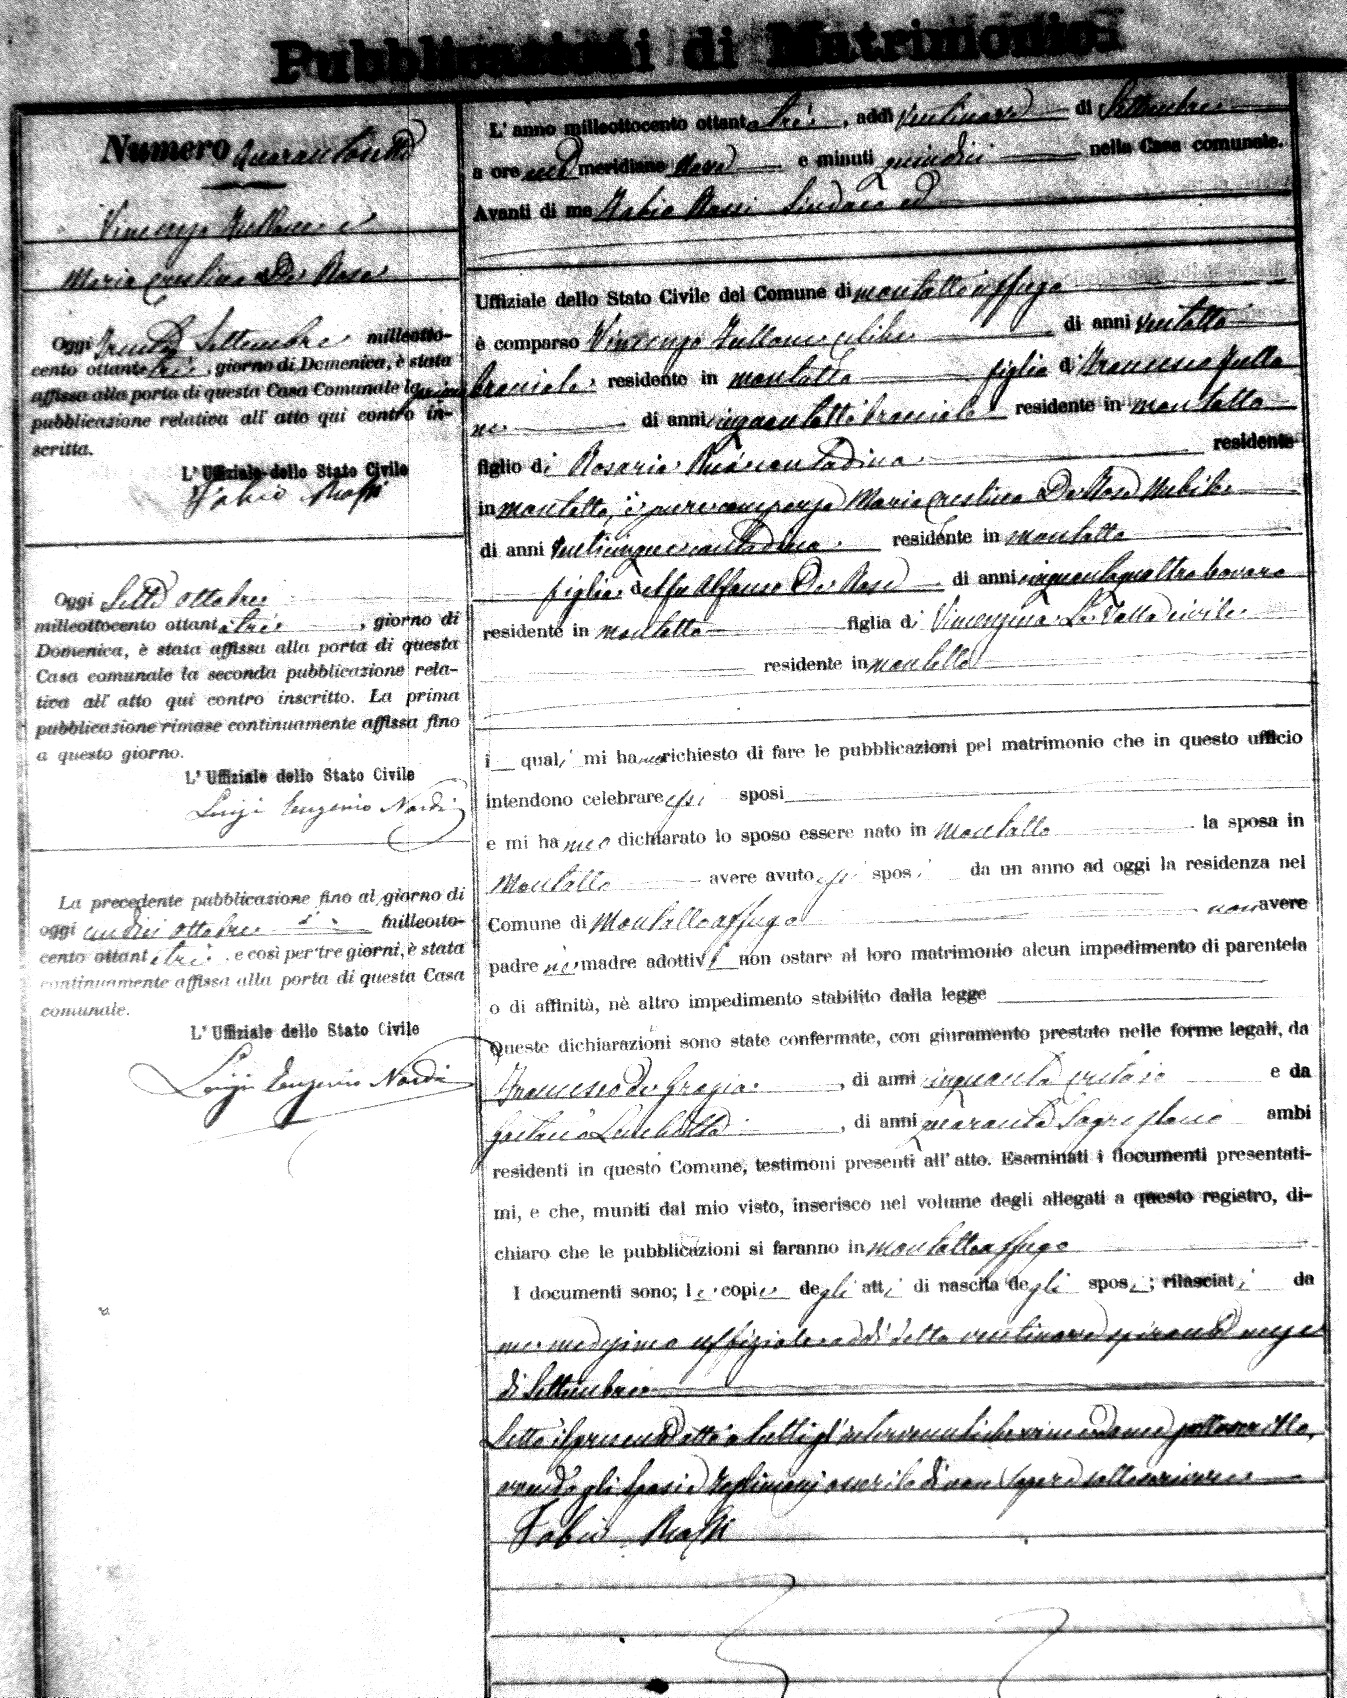 Pubblicazioni di Matrimonio
Numero Quarantasette
Vincenzo Fullone e
Maria Cristina De Rose
Oggi Trenta Settembre milleotto-
cento ottantatrè, giorno di Domenica, è stata
affissa alla porta di questa Casa Comunale la prima
pubblicazione relativa all' atto qui contro in-
scritta.
L' Uffiziale dello Stato Civile
Fabio Rossi
Oggi Sette Ottobre
milleottocento ottantatrè, giorno di
Domenica, è stata affissa alla porta di questa
Casa comunale la seconda pubblicazione rela-
tiva all' atto qui contro inscritto. La prima
pubblicazione rimase continuamente affissa fino
a questo giorno.
L' Uffiziale dello Stato Civile
Luigi Eugenio Nardi
La precedente pubblicazione fino al giorno di
oggi undici Ottobre milleotto-
cento ottantatrè e così per tre giorni, è stata
continuamente affissa alla porta di questa Casa
comunale.
L' Uffiziale dello Stato Civile
Luigi Eugenio Nardi
L' anno milleottocento ottantatrè, addì ventinove di Settembre
a ore meridiane nove e minuti quindici nella Casa comunale.
Avanti di me Fabio Rossi Sindaco ed
Uffiziale dello Stato Civile del Comune di Montalto Uffugo
è comparso Vincenzo Fullone celibe di anni ventotto
bracciale residente in Montalto figlio di Francesco Fullo
ne di anni cinquantotto bracciale residente in Montalto
figlio di Rosaria contadina residente
in Montalto, è pure comparsa Maria Cristina De Rose nubile
di anni venticinque contadina residente in Montalto
figlia del fu Alfonso De Rose di anni cinquantaquattro bovaro
residente in Montalto figlia di Vincenzina La Valle civile
residente in Montalto
i quali mi hanno richiesto di fare le pubblicazioni pel matrimonio che in questo ufficio
intendono celebrare essi sposi
e mi hanno dichiarato lo sposo essere nato in Montalto la sposa in
Montalto avere avuto essi sposi da un anno ad oggi la residenza nel
Comune di Montalto Uffugo non avere
padre nè madre adottivi non ostare al loro matrimonio alcun impedimento di parentela
o di affinità, nè altro impedimento stabilito dalla legge
Queste dichiarazioni sono state confermate, con giuramento prestato nelle forme legali, da
Francesco De Grazia, di anni cinquanta e da
Gaetano, di anni quaranta Sagrestano ambi
residenti in questo Comune, testimoni presenti all' atto. Esaminati i documenti presentati-
mi, e che, muniti dal mio visto, inserisco nel volume degli allegati a questo registro, di-
chiaro che le pubblicazioni si faranno in Montalto Uffugo
I documenti sono; le copie degli atti di nascita degli sposi; rilasciati da
me medesimo uffiziale addì detto ventinove spirante mese
di Settembre
Letto il presente atto a tutti gl' intervenuti che viene da me sottoscritto,
avendo gli sposi e testimoni asserito di non sapere sottoscrivere
Fabio Rossi